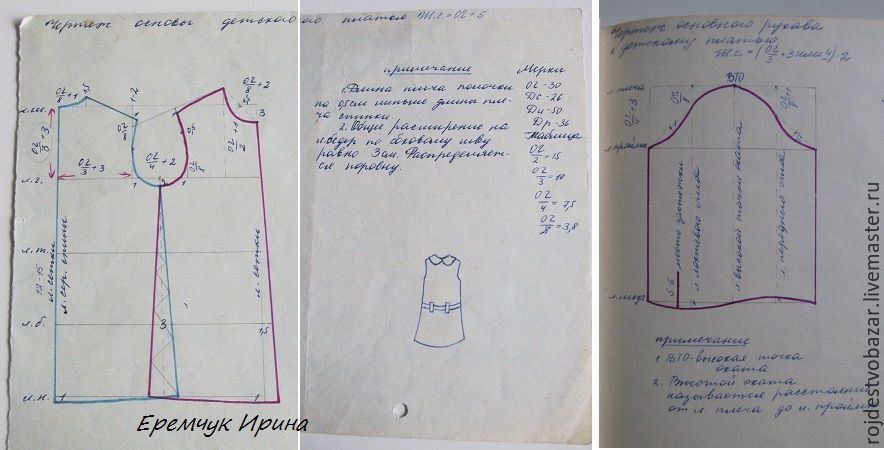 Чертеж основы детского платья Ш.г.=ОГ+5
ОГ/8+1
1,5
1-2
ОГ/8+2
3
л.ш.
ОГ/3+3
ОГ/3+3
ОГ/4+2
ОГ/8
1
1
л.г.
л.т.
12-15
л.сетки
л.сер. спины
л. сетки
л.б.
3
1,5
л.н.
1
1
Еремчук Ирина
примечание
1. Длина плеча полочки
на 0,5см меньше длины пле-
ча спинки.
2. Общее расширение на
л.бедер по боковому шву
равно 3см. Распределяет-
ся поровну.
Мерки
ОГ-30
Дс-26
Ди-50
Др-36
Таблица
ОГ/2=15
ОГ/3=10
ОГ/4=7,5
ОГ/8=3,8
Чертеж основного рукава
к детскому платью
Ш.с.=(ОГ/3+3или4)·2
ВТО
л. плеча
ОГ/8
л.проймы
место застежки
л. локтевого сгиба
л.высокой точки оката
л. переднего сгиба
5-6
л.низа
примечание
1. ВТО-высокая точка
оката
2. Высотой оката
называется расстояние
от л. плеча до л. проймы
rojdestvobazar.livemaster.ru